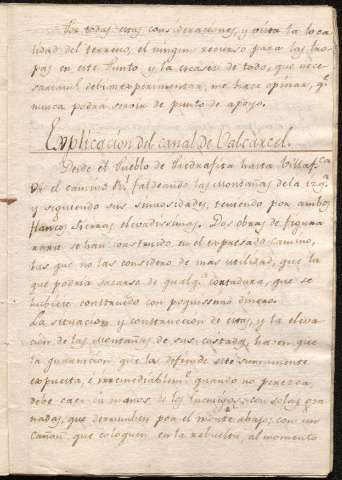 Por todas estas consideraciones, y vista la loca
lidad del terreno, el ningun recurso para las tro
pas en este punto y la escasez de todo, que nece
sariamte debian experimentar, me hace opinar, qe
nunca podrá servir de punto de apoyo.
Explicacion del canal de Valcarcel.
Desde el Pueblo de Piedrafita hasta Villafca
el camino faldeando las montañas de la izqa
y siguiendo sus sinuosidades, teniendo por ambos
flancos Sierras elevadissimas. Dos obras de figura
rara se han construido en el expresado camino,
las que no las considero de mas utilidad, que la
que podria sacarse de qualqa Cortadura, que se
hubiere construido con poquissimo dinero.
La situacion y construccion de estas, y la eleva
cion de las Montañas de sus costados, hacen que
la guarnicion que las defiende esté sumamente
expuesta, é irremediablemte quando no perezca,
debe caer en manos de los Enemigos, con solas gra
nadas, que derrumben por el monte abajo, con un
Cañon que coloquen en la rebuelta, al momento